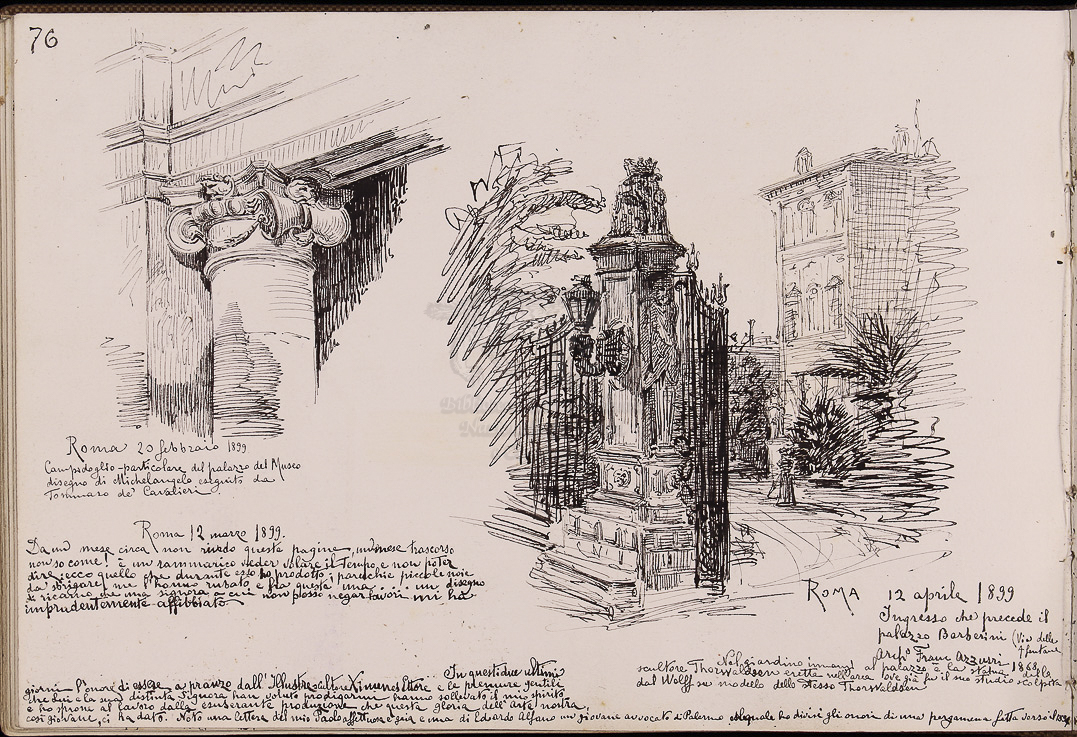 76
Roma 20 febbraio 1899
Campidoglio - particolare del palazzo del Museo
disegno di Michelangelo eseguito da
Tommaso de' Cavalieri
Roma 12 marzo 1899.
Da un mese circa non rivedo queste pagine, un mese trascorso
non so come! è un rammarico veder volare il tempo e non poter
dire: ecco quello che durante esso ho prodotto; parecchie piccole noie
da sbrigare me l'hanno rubato e fra queste una un disegno
di ricamo che una signora a cui non posso negar favori mi ha
imprudentemente affibbiato
Roma 12 aprile 1899
Ingresso che precede il
palazzo Barberini (Via delle
4 fontane
Archo Franc Azzurri 1868
Nel giardino innanzi al palazzo è la statua dello
scultore Thorwaldsen eretta nell'area ove già fu il suo studio scolpita
dal Wolff su modello dello stesso Thorwaldsen
In questi due ultimi
giorni l'onore di essere a pranzo dall'Illustre scultore Ximenes Ettore e le premure gentili
che lui e la sua distinta Signora hanno voluto prodigarmi hanno sollevato il mio spirito
e ho sprone al lavoro dalla esuberante produzione che questa gloria dell'arte nostra,
così giovane, ci ha dato. Noto una lettera del mio Paolo affettuosa e una di Edoardo Alfano un giovane avvocato di Palermo col quale ho divisi gli onori di una pergamena fatta verso il